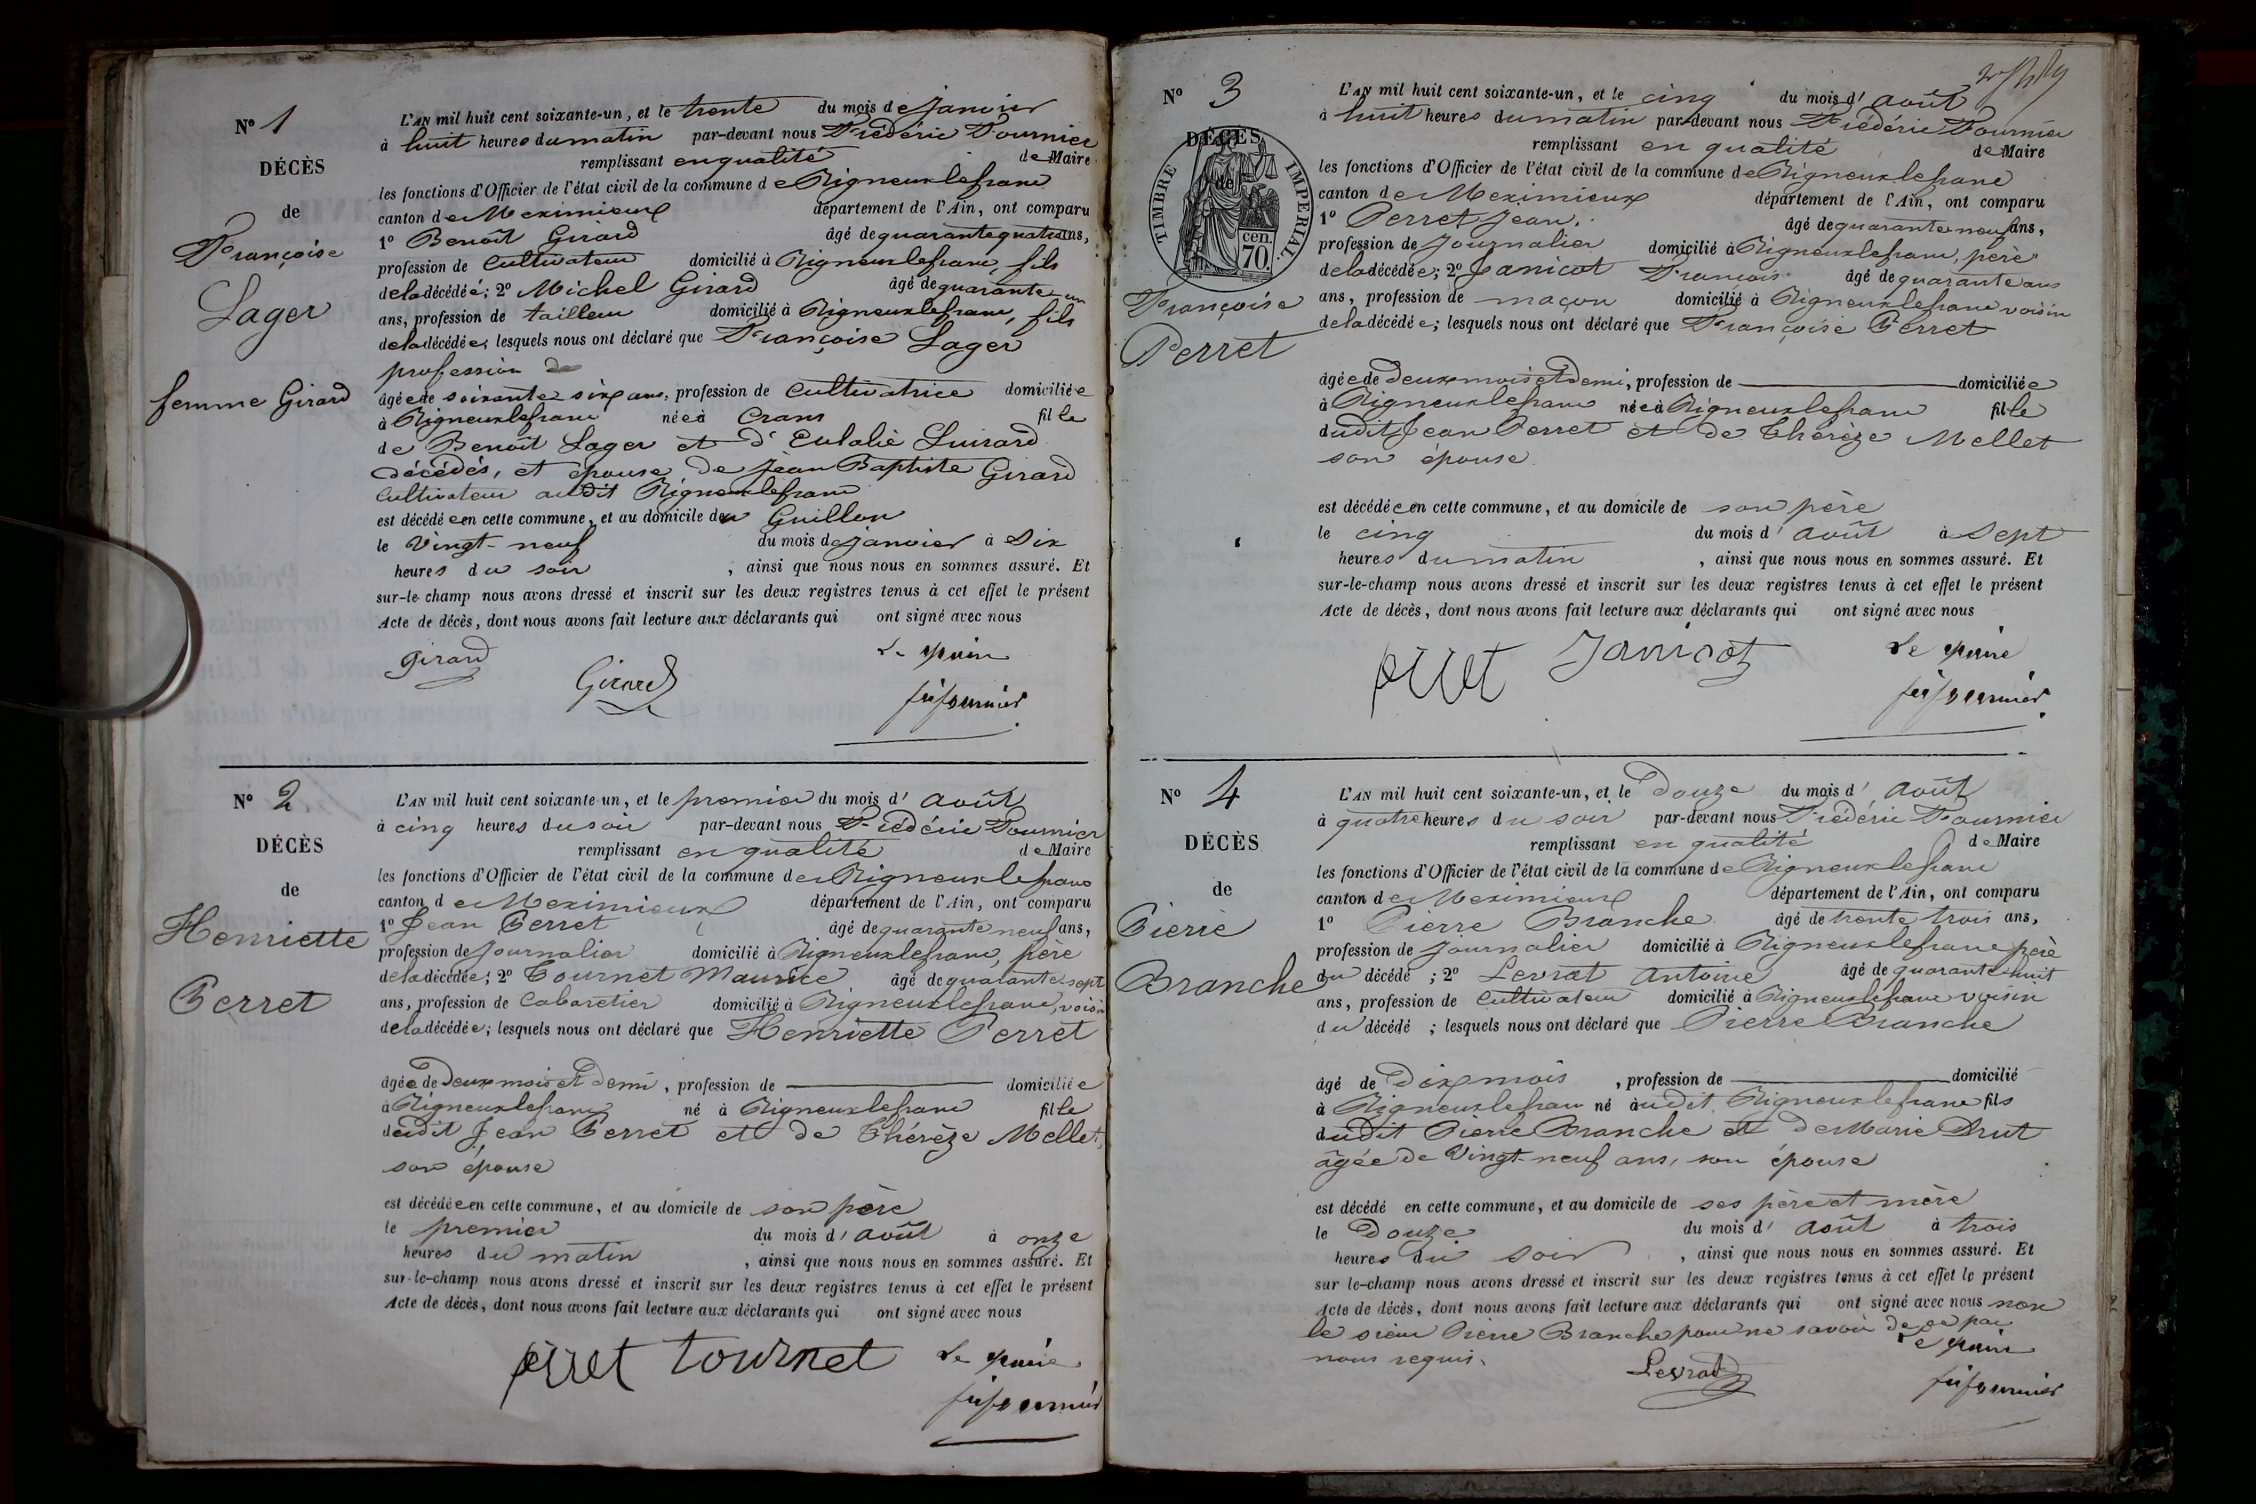 N° 1
DÉCÈS
de
Françoise
Lager
femme Girard
L'AN mil huit cent soixante-un, et le trente du mois de janvier
à huit heures du matin par-devant nous Frédéric Fournier
remplissant en qualité de Maire
les fonctions d'Officier de l'état civil de la commune de Rigneux le franc
canton de Meximieux département de l'Ain, ont comparu
1° Benoît Girard âgé de quarante quatre ans,
profession de Cultivateur domicilié à Rigneux le franc, fils
de la décédée; 2° Michel Girard âgé de quarante un
ans, profession de tailleur domicilié à Rigneux le franc, fils
de la décédée; lesquels nous ont déclaré que Françoise Lager
profession de
âgée de soixante six ans, profession de Cultivatrice domiciliée
à Rigneux le franc née à Crans fille
de Benoît Lager et d'Eulalie Luirard
décédés, et épouse de Jean Baptiste Girard
Cultivateur audit Rigneux le franc
est décédée en cette commune, et au domicile du Guillon
le Vingt-neuf du mois de janvier à Six
heures du soir, ainsi que nous nous en sommes assuré. Et
sur-le-champ nous avons dressé et inscrit sur les deux registres tenus à cet effet le présent
Acte de décès, dont nous avons fait lecture aux déclarants qui ont signé avec nous
girard Girard Le maire
N° 2
DÉCÈS
de
Henriette
Perret
L'AN mil huit cent soixante-un, et le premier du mois d'août
à cinq heures du soir par-devant nous Frédéric Fournier
remplissant en qualité de Maire
les fonctions d'Officier de l'état civil de la commune de Rigneux le franc
canton de Meximieux département de l'Ain, ont comparu
1° Jean Perret âgé de quarante neuf ans,
profession de Journalier domicilié à Rigneux le franc, père
de la décédée; 2° Tournet Maurice âgé de quarante sept
ans, profession de Cabaretier domicilié à Rigneux le franc, voisin
de la décédée; lesquels nous ont déclaré que Henriette Perret
âgée de deux mois et demi, profession de domiciliée
à Rigneux le franc né à Rigneux le franc fille
dudit Jean Perret et de Thérèze Mellet,
son épouse
est décédée en cette commune, et au domicile de son père
le premier du mois d'août à onze
heures du matin, ainsi que nous nous en sommes assuré. Et
sur-le-champ nous avons dressé et inscrit sur les deux registres tenus à cet effet le présent
Acte de décès, dont nous avons fait lecture aux déclarants qui ont signé avec nous
perret tournet Le maire
N° 3
DÉCÈS
de
TIMBRE IMPERIAL
70 cen.
Françoise
Perret
L'AN mil huit cent soixante-un, et le cinq du mois d'août
à huit heures du matin par-devant nous Frédéric Fournier
remplissant en qualité de Maire
les fonctions d'Officier de l'état civil de la commune de Rigneux le franc
canton de Meximieux département de l'Ain, ont comparu
1° Perret Jean. âgé de quarante neuf ans,
profession de Journalier domicilié à Rigneux le franc, père
de la décédée; 2° Janicot François âgé de quarante ans
ans, profession de maçon domicilié à Rigneux le franc voisin
de la décédée; lesquels nous ont déclaré que Françoise Perret
âgée de deux mois et demi, profession de domiciliée
à Rigneux le franc née à Rigneux le franc fille
dudit Jean Perret et de Thérèze Mellet
son épouse
est décédée en cette commune, et au domicile de son père
le cinq du mois d'août à sept
heures du matin, ainsi que nous nous en sommes assuré. Et
sur-le-champ nous avons dressé et inscrit sur les deux registres tenus à cet effet le présent
Acte de décès, dont nous avons fait lecture aux déclarants qui ont signé avec nous
perret Janicot Le maire
N° 4
DÉCÈS
de
Pierre
Branche
L'AN mil huit cent soixante-un, et le Douze du mois d'août
à quatre heures du soir par-devant nous Frédéric Fournier
remplissant en qualité de Maire
les fonctions d'Officier de l'état civil de la commune de Rigneux le franc
canton de Meximieux département de l'Ain, ont comparu
1° Pierre Branche âgé de trente trois ans,
profession de Journalier domicilié à Rigneux le franc père
du décédé; 2° Levrat Antoine âgé de quarante huit
ans, profession de Cultivateur domicilié à Rigneux le franc voisin
du décédé; lesquels nous ont déclaré que Pierre Branche
âgé de Dix mois, profession de domicilié
à Rigneux le franc né audit Rigneux le franc fils
dudit Pierre Branche et de Marie Drut
âgée de Vingt-neuf ans, son épouse
est décédé en cette commune, et au domicile de ses père et mère
le Douze du mois d'août à trois
heures du soir, ainsi que nous nous en sommes assuré. Et
sur-le-champ nous avons dressé et inscrit sur les deux registres tenus à cet effet le présent
Acte de décès, dont nous avons fait lecture aux déclarants qui ont signé avec nous non
le sieur Pierre Branche pour ne savoir de ce par
nous requis.
Levrat Le maire